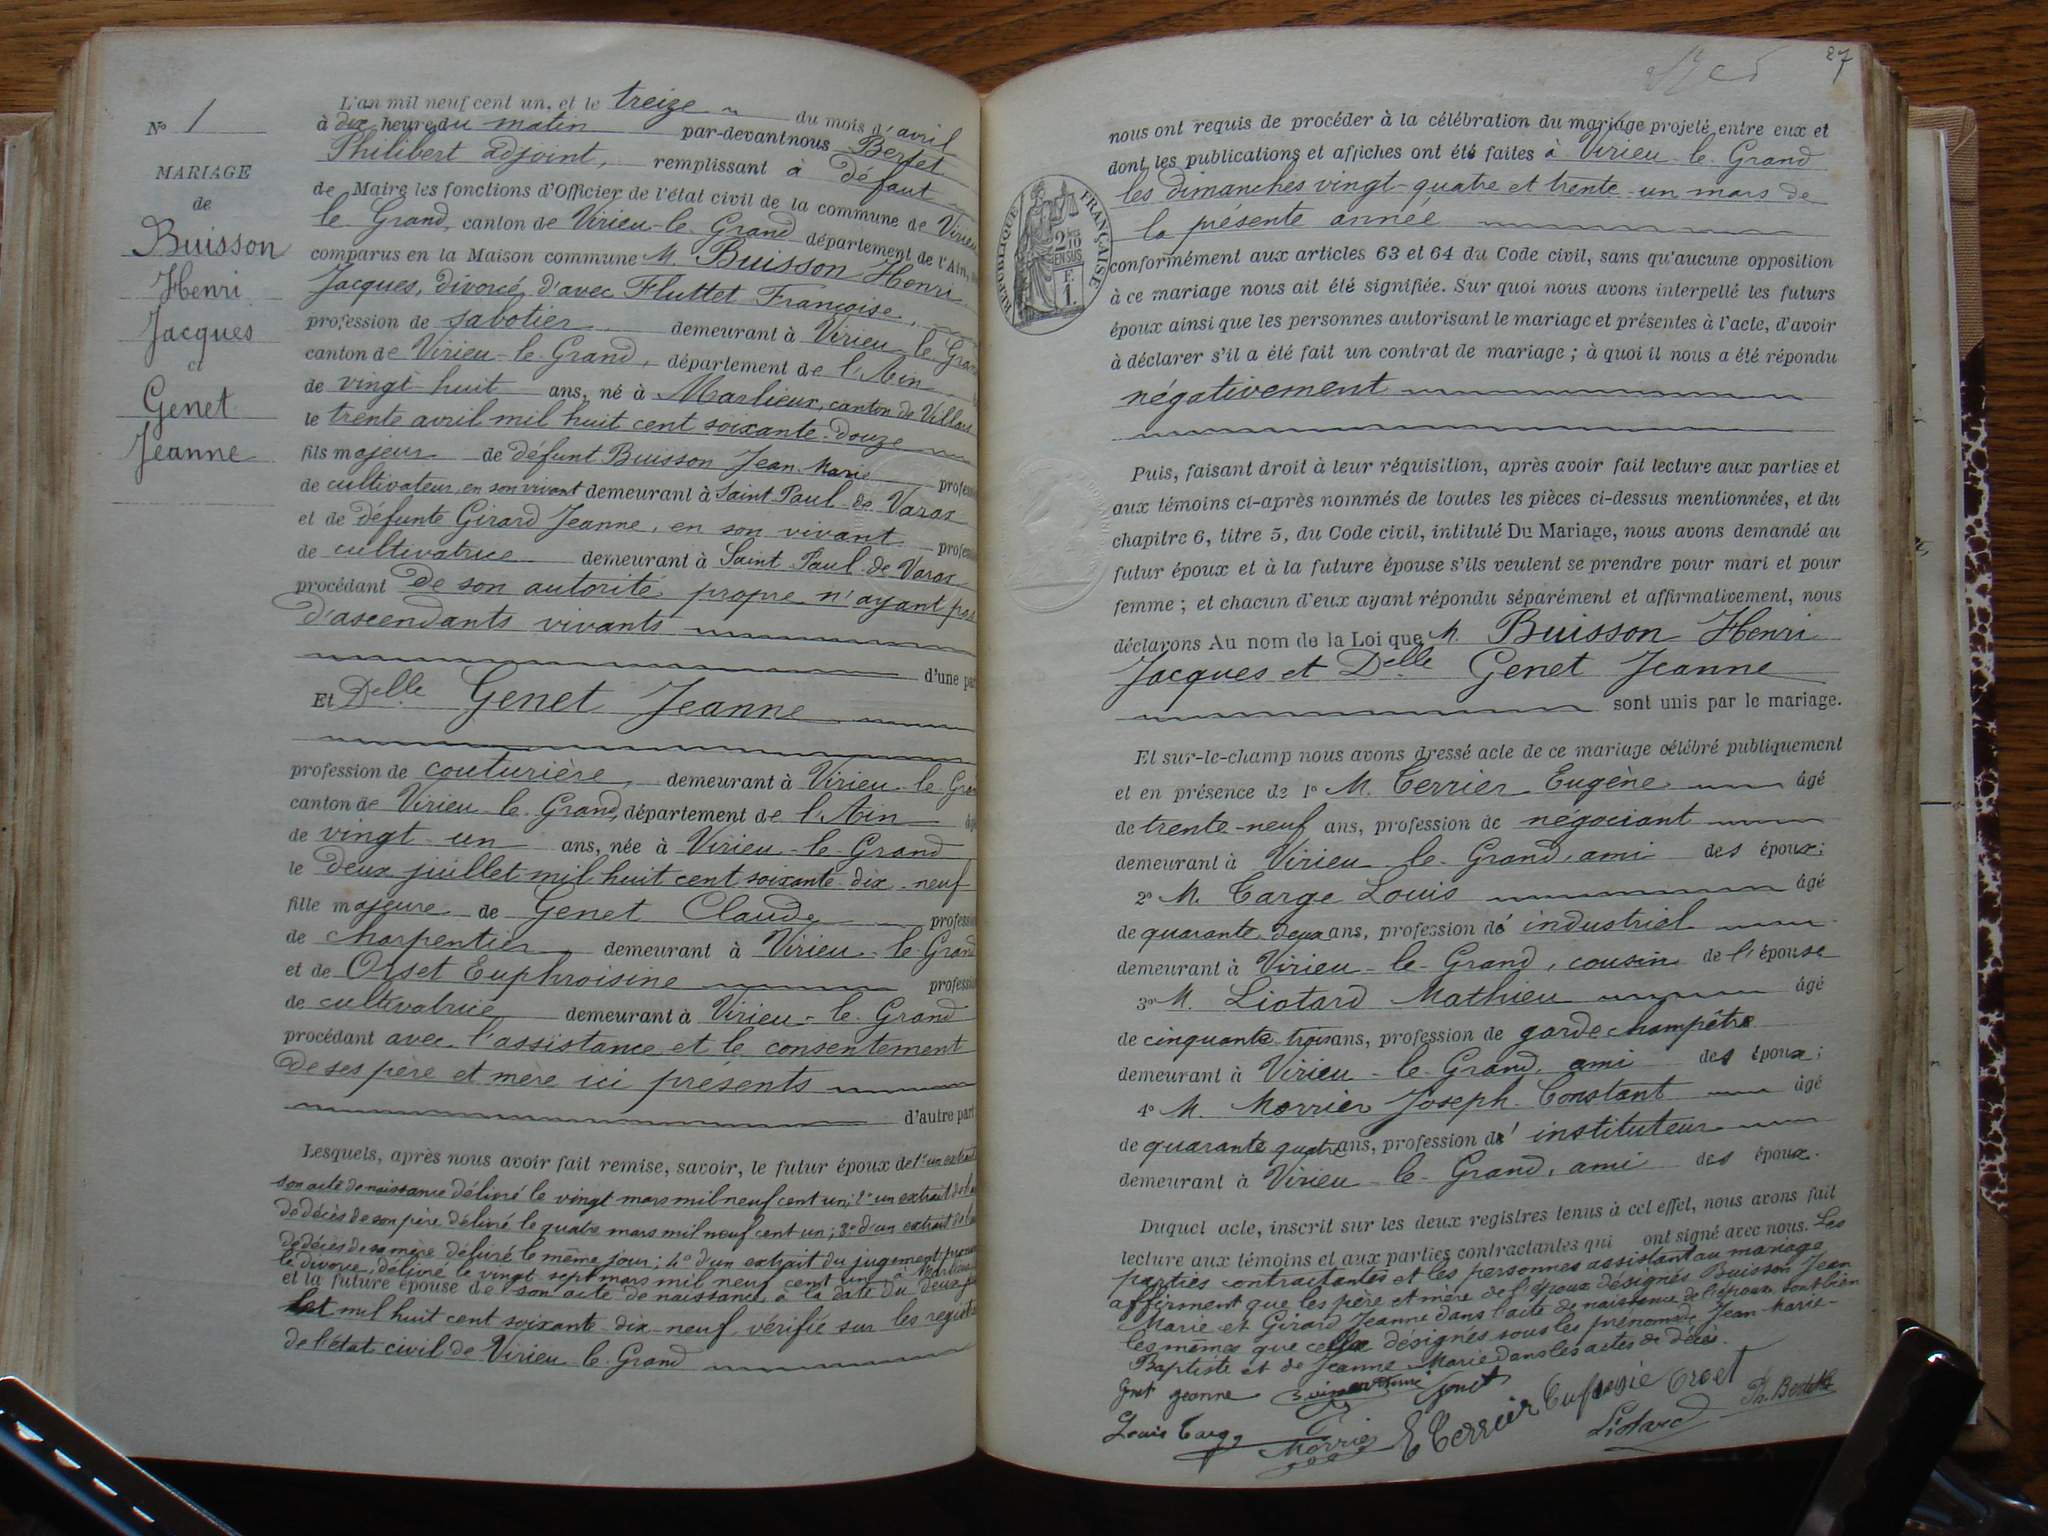 Nº 1
MARIAGE
de
Buisson
Henri
Jacques
et
Genet
Jeanne
L'an mil neuf cent un, et le treize du mois d'avril
à dix heure du matin par-devant nous Bertet
Philibert adjoint, remplissant à défaut
de Maire les fonctions d'Officier de l'état civil de la commune de Virieu
le Grand, canton de Virieu-le-Grand département de l'Ain,
comparus en la Maison commune M. Buisson Henri
Jacques, divorcé d'avec Fluttet Françoise,
profession de sabotier demeurant à Virieu-le-Grand
canton de Virieu-le-Grand, département de l'Ain
de vingt-huit ans, né à Marlieux, canton de Villars
le trente avril mil huit cent soixante-douze
fils majeur de défunt Buisson Jean-Marie profession
de cultivateur, en son vivant demeurant à Saint Paul-de-Varax
et de défunte Girard Jeanne, en son vivant profession
de cultivatrice demeurant à Saint Paul-de-Varax
procédant de son autorité propre n'ayant pas
d'ascendants vivants
d'une part
Et Delle Genet Jeanne
profession de couturière, demeurant à Virieu-le-Grand
canton de Virieu-le-Grand, département de l'Ain
de vingt-un ans, née à Virieu-le-Grand
le deux juillet mil huit cent soixante-dix-neuf
fille majeure de Genet Claude profession
de charpentier demeurant à Virieu-le-Grand
et de Orset Euphroisine profession
de cultivatrice demeurant à Virieu-le-Grand
procédant avec l'assistance et le consentement
de ses père et mère ici présents
d'autre part
Lesquels, après nous avoir fait remise, savoir, le futur époux de 1º un extrait
son acte de naissance délivré le vingt mars mil neuf cent un; 2º un extrait de
de décès de son père délivré le quatre mars mil neuf cent un; 3º d'un extrait de
de décès de sa mère délivré le même jour; 4º d'un extrait du jugement
le divorce, délivré le vingt-sept mars mil neuf cent un, à
et la future épouse de son acte de naissance, à la date du deux
let mil huit cent soixante-dix-neuf, vérifié sur les registres
de l'état civil de Virieu-le-Grand
27
nous ont requis de procéder à la célébration du mariage projeté entre eux et
dont les publications et affiches ont été faites à Virieu-le-Grand
les dimanches vingt-quatre et trente-un mars de
la présente année
RÉPUBLIQUE FRANÇAISE
2/10
EN SUS
F.
1.
conformément aux articles 63 et 64 du Code civil, sans qu'aucune opposition
à ce mariage nous ait été signifiée. Sur quoi nous avons interpellé les futurs
époux ainsi que les personnes autorisant le mariage et présentes à l'acte, d'avoir
à déclarer s'il a été fait un contrat de mariage; à quoi il nous a été répondu
négativement
Puis, faisant droit à leur réquisition, après avoir fait lecture aux parties et
aux témoins ci-après nommés de toutes les pièces ci-dessus mentionnées, et du
chapitre 6, titre 5, du Code civil, intitulé Du Mariage, nous avons demandé au
futur époux et à la future épouse s'ils veulent se prendre pour mari et pour
femme; et chacun d'eux ayant répondu séparément et affirmativement, nous
déclarons Au nom de la Loi que M. Buisson Henri
Jacques et Delle Genet Jeanne
sont unis par le mariage.
Et sur-le-champ nous avons dressé acte de ce mariage célébré publiquement
et en présence de 1º M. Terrier Eugène âgé
de trente-neuf ans, profession de négociant
demeurant à Virieu-le-Grand, ami des époux;
2º M. Targe Louis âgé
de quarante-deux ans, profession d' industriel
demeurant à Virieu-le-Grand, cousin de l'épouse
3º M. Liotard Mathieu âgé
de cinquante-trois ans, profession de garde champêtre
demeurant à Virieu-le-Grand, ami des époux;
4º M. Morrier Joseph-Constant âgé
de quarante quatre ans, profession d' instituteur
demeurant à Virieu-le-Grand, ami des époux.
Duquel acte, inscrit sur les deux registres tenus à cet effet, nous avons fait
lecture aux témoins et aux parties contractantes qui ont signé avec nous. Les
parties contractantes et les personnes assistant au mariage
affirment que les père et mère de l'époux désignés Buisson Jean
Marie et Girard Jeanne dans l'acte de naissance de l'époux sont bien
les mêmes que ceux désignés sous les prénoms de Jean-Marie-
Baptiste et de Jeanne-Marie dans les actes de décès.
Genet Jeanne Genet
Louis Targe Morrier E Terrier Eufrosie Orset Liotard Ph. Bertet